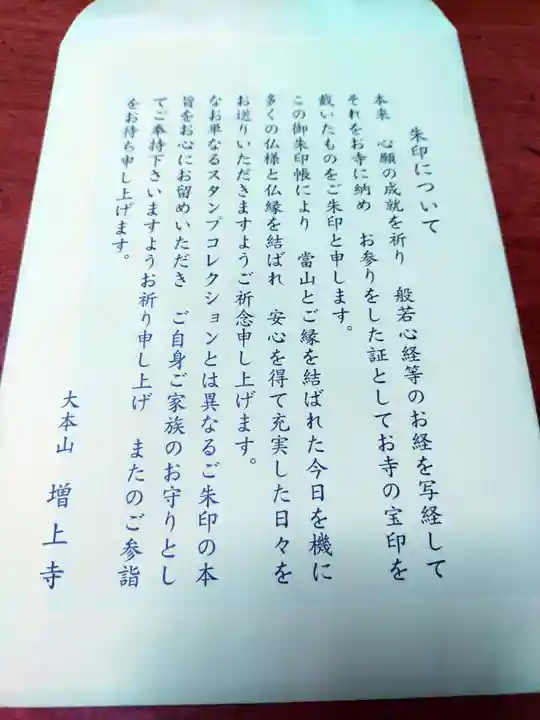 朱印について
本来 心願の成就を祈り 般若心経等のお経を写経して
それをお寺に納め お参りをした証としてお寺の宝印を
戴いたものをご朱印と申します。
この御朱印帳により 當山とご縁を結ばれた今日を機に
多くの仏様と仏縁を結ばれ 安心を得て充実した日々を
お送りいただきますようご祈念申し上げます。
なお単なるスタンプコレクションとは異なるご朱印の本
旨をお心にお留めいただき ご自身ご家族のお守りとし
てご奉持下さいますようお祈り申し上げ またのご参詣
をお待ち申し上げます。
大本山 増上寺